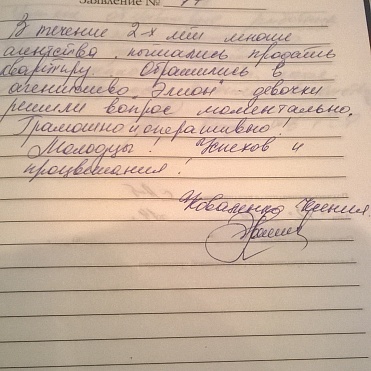 Заявление №
В течение 2-х лет многие
агентства пытались продать
квартиру. Обратились в
агентство "Элион" - девочки
решили вопрос моментально.
Грамотно и оперативно!
Молодцы! Успехов и
процветания!
Коваленко Ксения